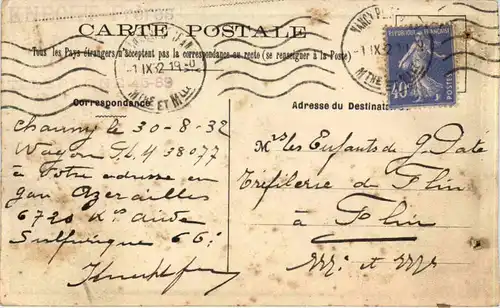 CARTE POSTALE
Tous les Pays étrangers n'acceptent pas la correspondance au recto (se renseigner à la Poste)
-1 IX
MTHE ET M
NANCY
-1 IX
MTHE
40c
POSTES
Correspondance
Adresse du Destinat
Chauny le 30-8-32
Wagon 38077
à Votre adresse en
gare Azerailles
6720 Ks Acide
Sulfurique 66:
Mrs les Enfants de G Daté
Tréfilerie de Flin
à Flin
M et M